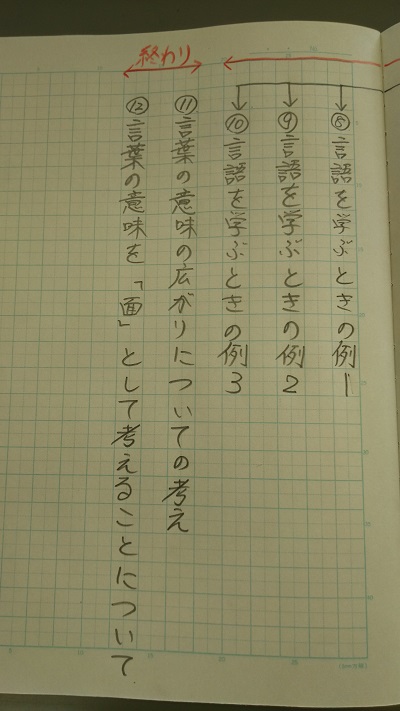 終わり
⑧言語を学ぶときの例1
⑨言語を学ぶときの例2
⑩言語を学ぶときの例3
⑪言葉の意味の広がりについての考え
⑫言葉の意味を「面」として考えることについて